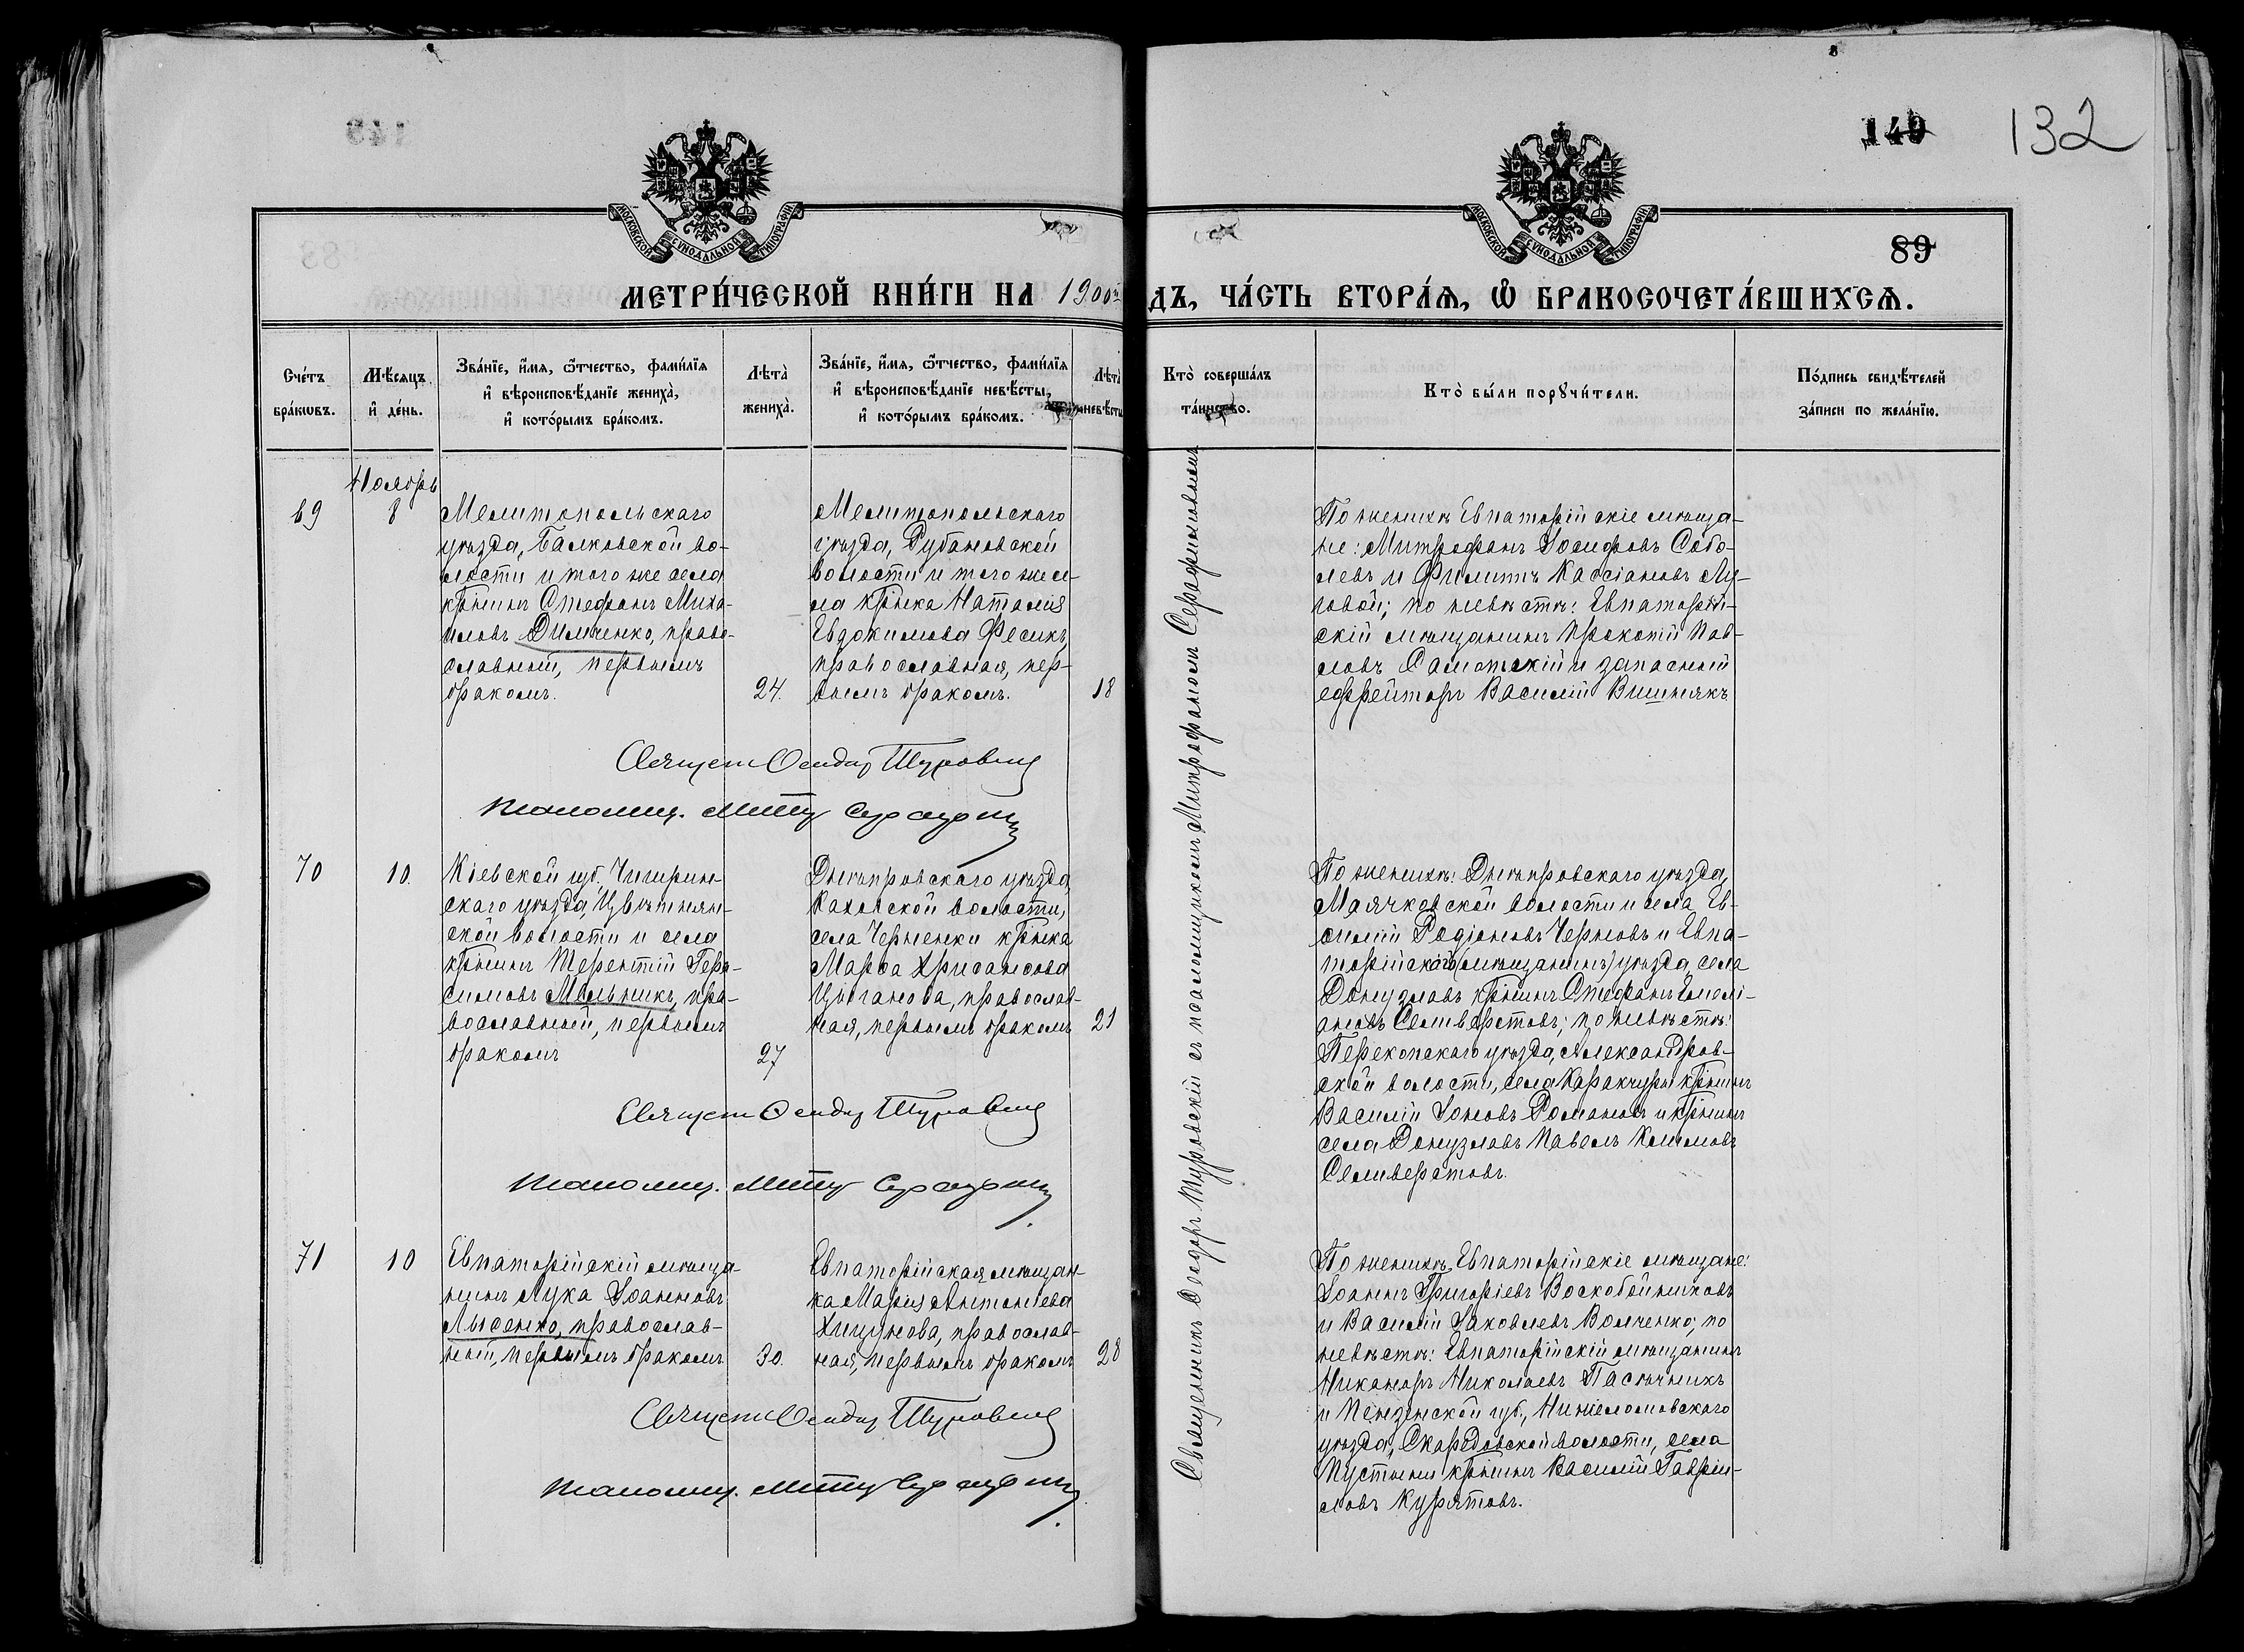 149
132
МОСКОВСКОЙ СѴНОДАЛЬНОЙ ТИПОГРАФІИ
МОСКОВСКОЙ СѴНОДАЛЬНОЙ ТИПОГРАФІИ
89
МЕТРИ́ЧЕСКОЙ КНИ́ГИ НА 1900й
ДЪ, ЧА́СТЬ ВТОРА́Ѧ, Ѡ҆ БРАКОСОЧЕТА́ВШИХСѦ.
Сче́тъ
бра́кѡвъ.
Мѣ́сяцъ
и҆ де́нь.
Зва́нїе, и҆́мя, ѻ҆́тчество, фами́лїя
и҆ вѣроисповѣ́данїе жениха̀,
и҆ кото́рымъ бра́комъ.
Лѣта̀
жениха̀.
Зва́нїе, и҆́мя, ѻ҆́тчество, фами́лїя
и҆ вѣроисповѣ́данїе невѣ́сты,
и҆ кото́рымъ бра́комъ.
Лѣта̀
невѣ́сты
Кто̀ соверша́лъ
та́инство.
Кто̀ бы́ли порꙋчи́тели.
По́дпись свидѣ́телей
за́писи по жела́нїю.
Ноябрь
69
8
Мелитопольскаго
уѣзда, Балковской во-
лости и того же села
кр-нинъ Стефанъ Миха-
иловъ Димченко, право-
славный, первымъ
бракомъ.
24.
Мелитопольскаго
уѣзда, Рубановской
волости и того же се-
ла кр-нка Наталія
Евдокимова Фесикъ,
православная, пер-
вымъ бракомъ.
18
По женихѣ Евпаторійскіе мѣща-
не: Митрофанъ Іосифовъ Собо-
левъ и Филиппъ Кассіановъ Лу-
говой; по невѣстѣ: Евпаторій-
скій мѣщанинъ Прокопій Пав-
ловъ Самотскій и запасный
ефрейторъ Василій Вишнякъ
Священ Ѳеодор Туровскій
Псаломщ. Митр Серафим
70
10.
Кіевской губ., Чигирин-
скаго уѣзда, Цвѣтнян-
ской волости и села
кр-нинъ Терентій Гера-
симовъ Мельникъ, пра-
вославный, первымъ
бракомъ
27
Днѣпровскаго уѣзда,
Каховской волости,
села Черненки кр-нка
Марѳа Хрисанѳова
Цыганова, православ-
ная, первымъ бракомъ
21
По женихѣ: Днѣпровскаго уѣзда,
Маячковской волости и села Ев-
силій Родіоновъ Черновъ и Евпа-
торійскаго (мѣщанинъ) уѣзда, села
Донузлавъ кр-нинъ Стефанъ Емелі-
ановъ Селиверстовъ; по невѣстѣ:
Перекопскаго уѣзда, Александров-
ской волости, села Каракчуры кр-нинъ
Василій Іоновъ Романовъ и кр-нинъ
села Донузлавъ Павелъ Климовъ
Селиверстовъ.
Священ Ѳеодор Туровскій
Псаломщ. Митр Серафим
71
10
Евпаторійскій мѣща-
нинъ Лука Іоанновъ
Лысенко, православ-
ный, первымъ бракомъ
30.
Евпаторійская мѣщан-
ка Марія Антоніева
Хицунова, православ-
ная, первымъ бракомъ
28
По женихѣ Евпаторійскіе мѣщане:
Іоаннъ Григоріевъ Воскобойниковъ
и Василій Іаковлевъ Волченко; по
невѣстѣ: Евпаторійскій мѣщанинъ
Никаноръ Николаевъ Пасѣчникъ
и Пензенской губ., Нижнеломовскаго
уѣзда, Скародовской волости, села
Пустыни кр-нинъ Василій Гаврии-
ловъ Курятовъ.
Священ Ѳеодор Туровскій
Псаломщ. Митр Серафим
Священникъ Ѳеодоръ Туровскій съ псаломщикомъ Митрофаномъ Серафимовымъ